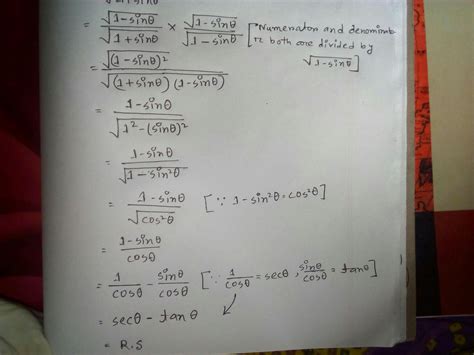 = √1-sinθ / √1+sinθ × √1-sinθ / √1-sinθ [Numenaton and denominb
re both are divided by √1-sinθ]
= √(1-sinθ)² / √(1+sinθ)(1-sinθ)
= 1-sinθ / √1²-(sinθ)²
= 1-sinθ / √1-sin²θ
= 1-sinθ / √cos²θ [∵ 1-sin²θ=cos²θ]
= 1-sinθ / cosθ
= 1/cosθ - sinθ/cosθ [∵ 1/cosθ = secθ, sinθ/cosθ = tanθ]
= secθ - tanθ
= R.S